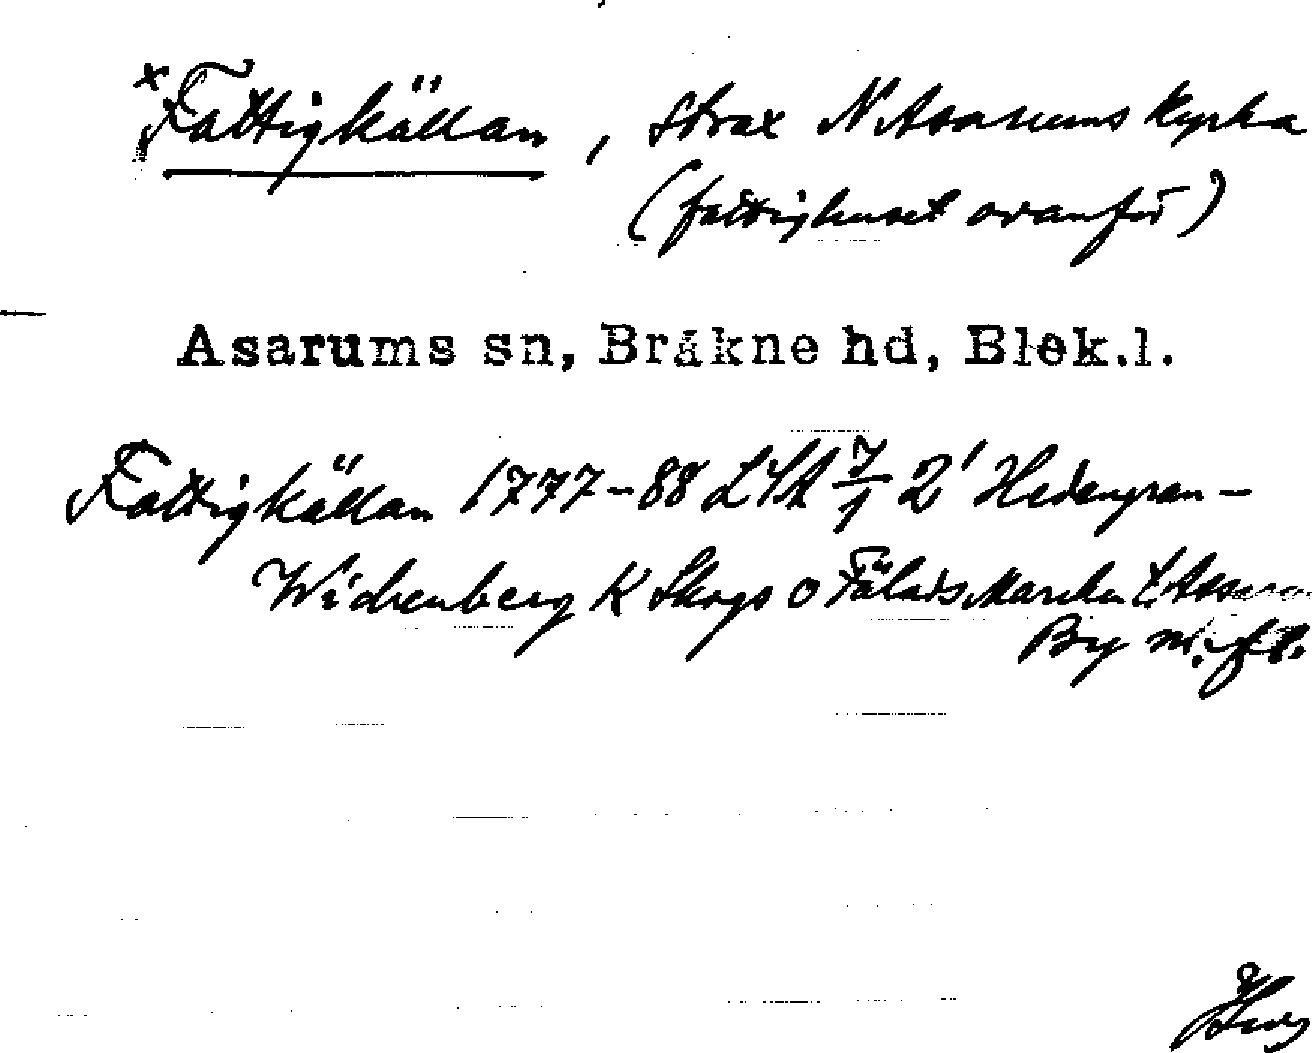 x Fattigkällan, strax N Asarums kyrka
(fattighuset ovanför)
Asarums sn, Bräkne hd, Blek.l.
Fattigkällan 1777-88 LSA 7/1 2' Hedengran-
Widenberg K Skogs o Fälads Marken t.
By m. fl.